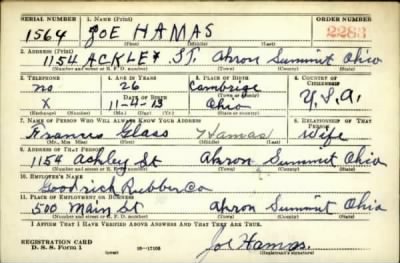 SERIAL NUMBER 1. NAME (Print) ORDER NUMBER
1564 JOE HAMAS 2283
(First) (Middle) (Last)
2. ADDRESS (Print)
1154 ACKLEY ST. Akron Summit Ohio
(Number and street or R. F. D. number) (Town) (County) (State)
3. TELEPHONE 4. AGE IN YEARS 5. PLACE OF BIRTH 6. COUNTRY OF CITIZENSHIP
no 26 Cambrige
DATE OF BIRTH
X 11-4-13 Ohio U.S.A.
(Exchange) (Number) (Mo.) (Day) (Yr.) (State or country)
7. NAME OF PERSON WHO WILL ALWAYS KNOW YOUR ADDRESS 8. RELATIONSHIP OF THAT PERSON
Francis Glass Hamas Wife
(Mr., Mrs., Miss) (First) (Middle) (Last)
9. ADDRESS OF THAT PERSON
1154 Ashley St Akron Summit Ohio
(Number and street or R. F. D. number) (Town) (County) (State)
10. EMPLOYER'S NAME
Goodrich Rubber Co
11. PLACE OF EMPLOYMENT OR BUSINESS
500 Main St Akron Summit Ohio
(Number and street or R. F. D. number) (Town) (County) (State)
I AFFIRM THAT I HAVE VERIFIED ABOVE ANSWERS AND THAT THEY ARE TRUE.
REGISTRATION CARD
D. S. S. Form 1 16—17105 Joe Hamas
(over) (Registrant's signature)